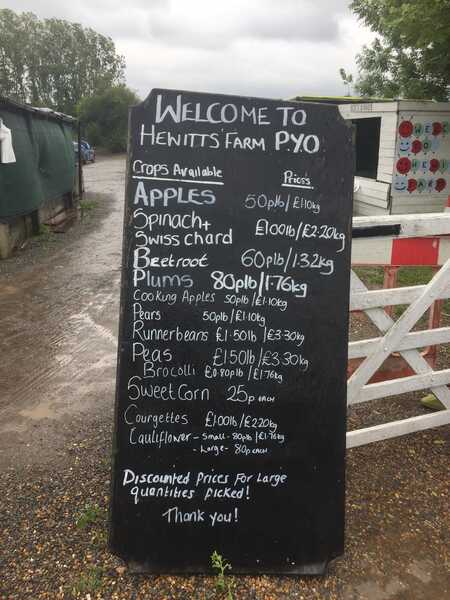 WELCOME TO
HEWITTS FARM P.Y.O
Crops Available Price's
APPLES 50p lb/£1.10kg
Spinach + Swiss chard £1.00lb/£2.20kg
Beetroot 60p lb/1.32kg
Plums 80p lb/1.76kg
Cooking Apples 50p lb/£1.10kg
Pears 50p lb/£1.10kg
Runnerbeans £1.50lb/£3.30kg
Peas £1.50lb/£3.30kg
Brocolli £0.80p lb/£1.76kg
Sweet Corn 25p each
Courgettes £1.00lb/£2.20kg
Cauliflower - Small - 80p lb/£1.76kg
- Large - 80p each
Discounted Prices For Large
quantities picked!
Thank you!